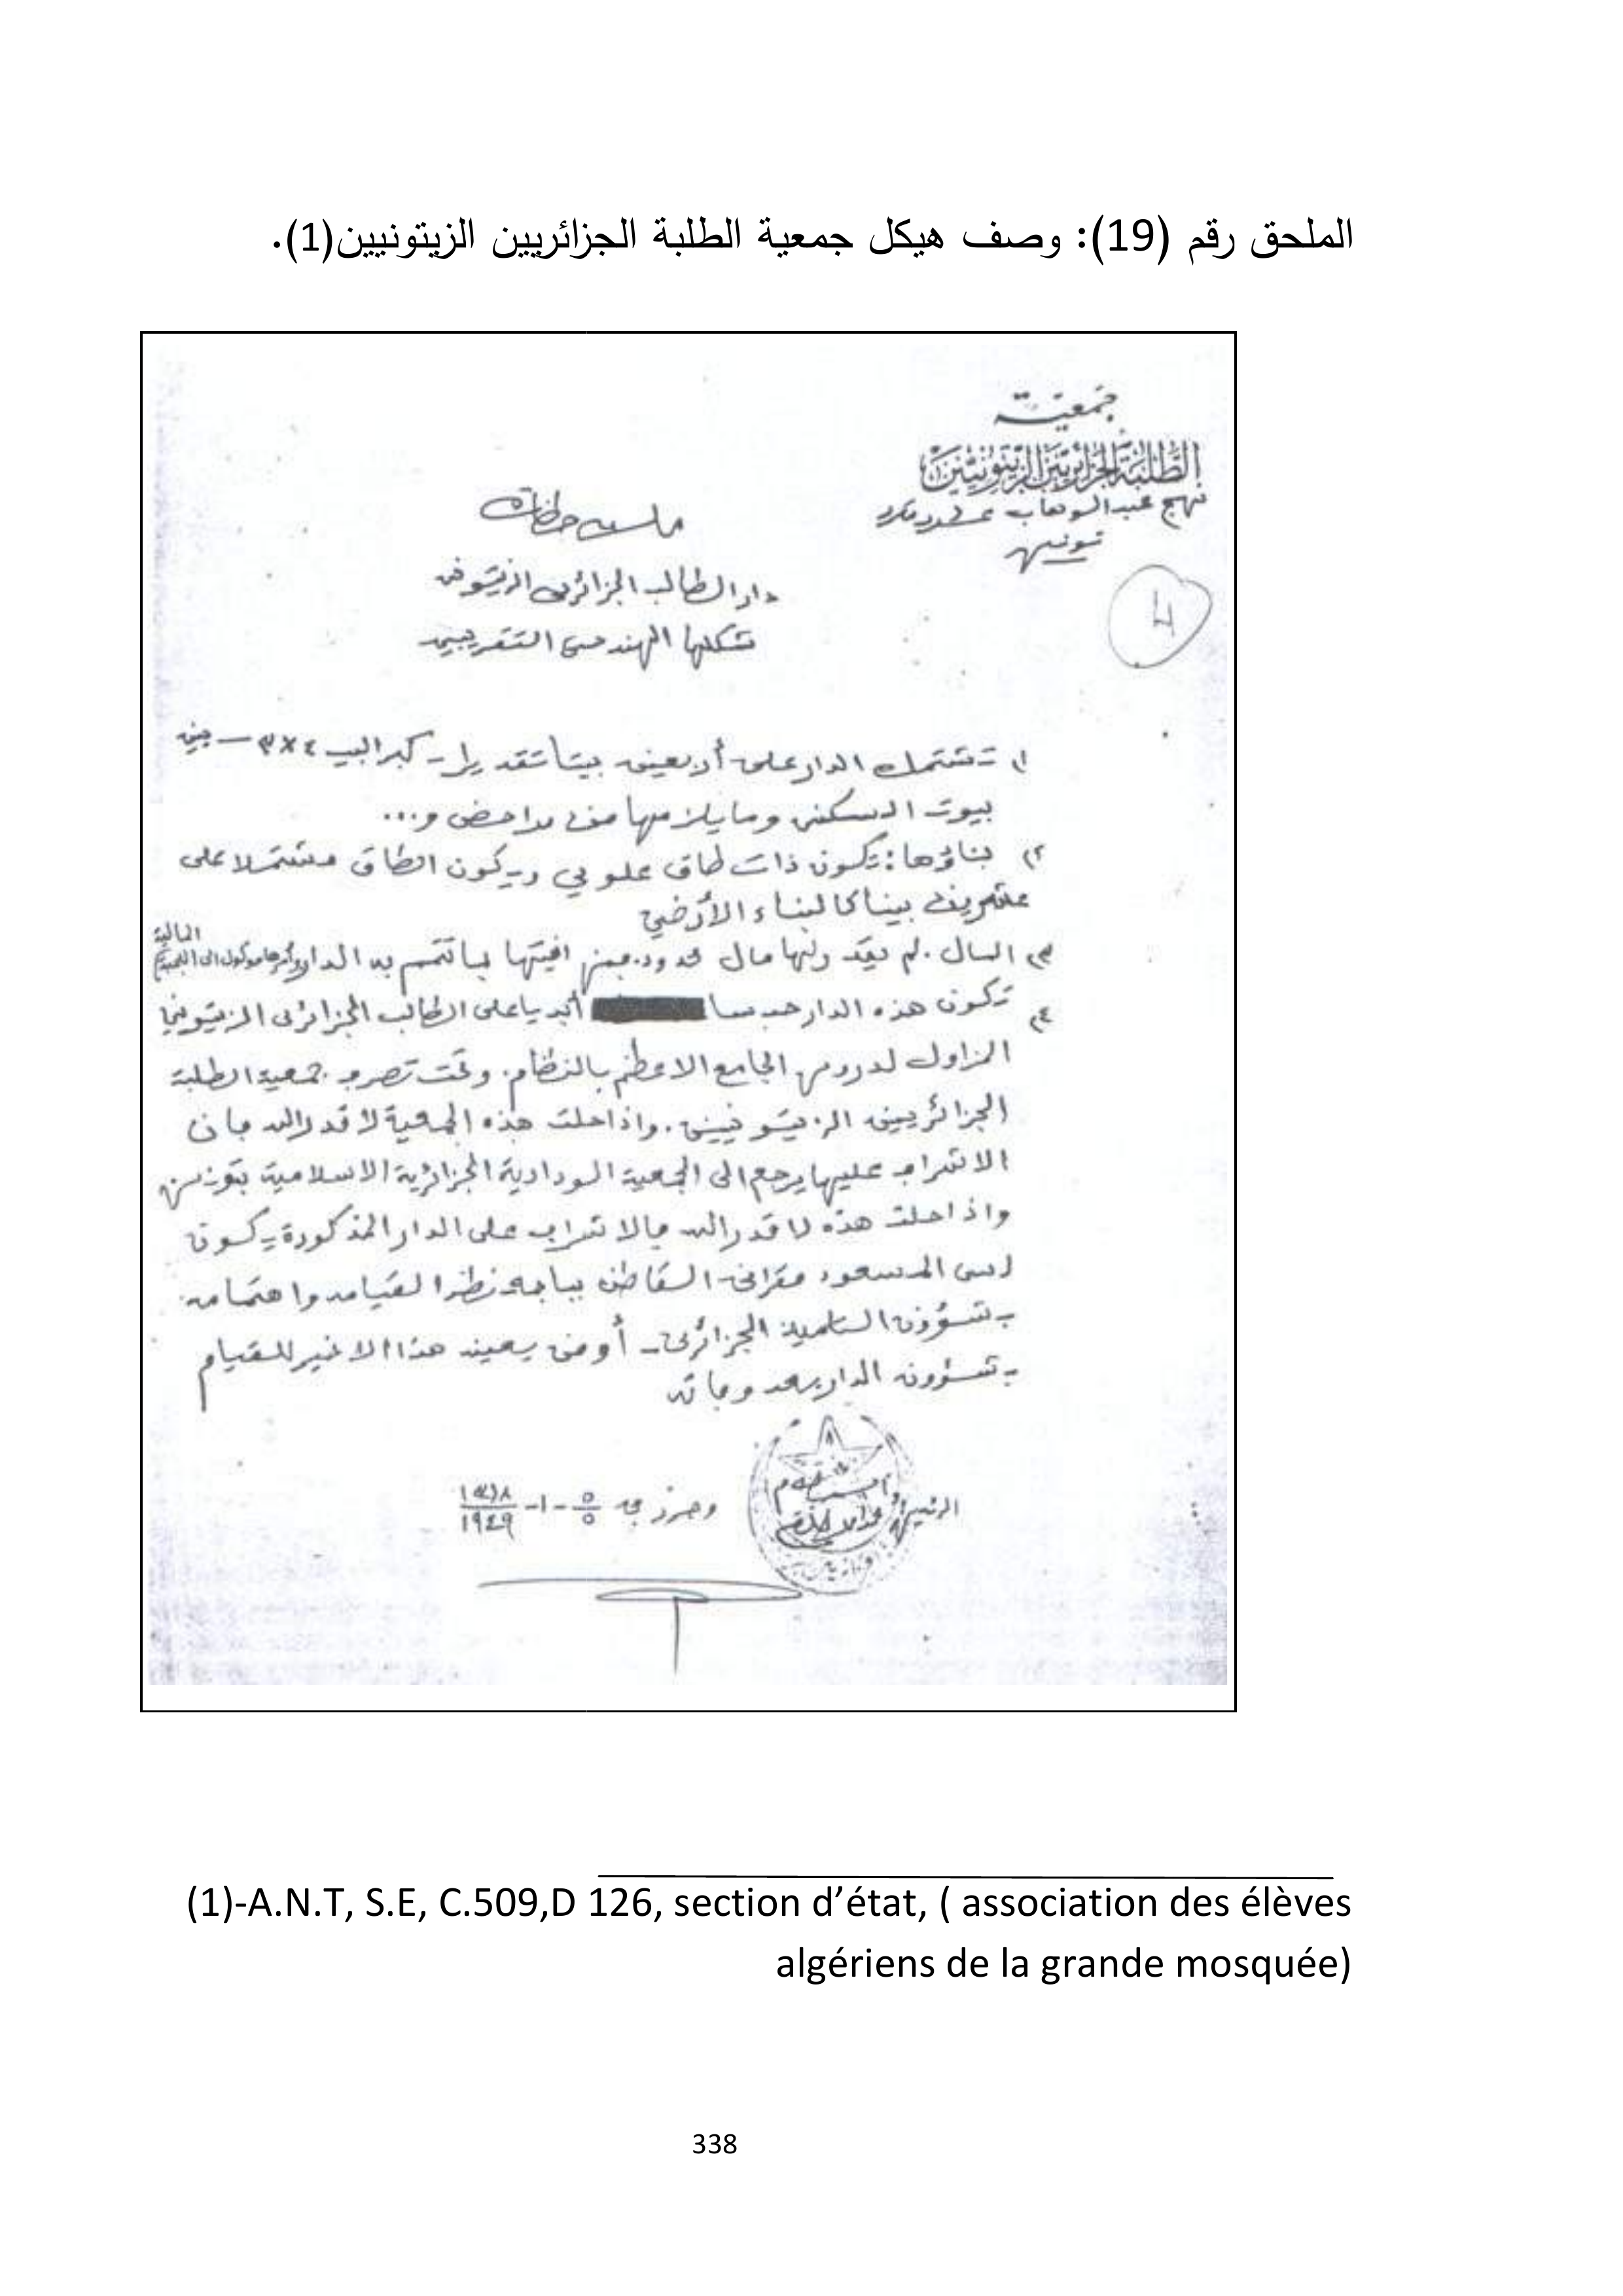 الملحق رقم (19): وصف هيكل جمعية الطلبة الجزائريين الزيتونيين(1).
جمعية
الطلبة الجزائريين الزيتونيين
نهج عبد الوهاب عدد
تونس
4
ملاحظات
دار الطالب الجزائري الزيتوني
شكلها الهندسي التقريبي
١) تشتمل الدار على أربعين بيتا تقديرا - كبر البيت ٤×٣ — بين
بيوت السكنى وما يلزمها من مراحض و...
٢) بناؤها: تكون ذات طاق علوي ويكون الطاق مشتملا على
عشرين بيتا كالبناء الأرضي
٣) المال. لم يقدر لها مال محدود. به الدار وأمرها موكول الى اللجنة
المالية
٤) تكون هذه الدار حبسا أبديا على الطالب الجزائري الزيتوني
المزاول لدروس الجامع الاعظم بالنظام. وتحت تصرف جمعية الطلبة
الجزائريين الزيتونيين. واذا حلت هذه الجمعية لا قدر الله فان
الاشراف عليها يرجع الى الجمعية الودادية الجزائرية الاسلامية بتونس
واذا حلت هذه لا قدر الله فالاشراف على الدار المذكورة يكون
لسي المسعود مقراني القاطن بباجة نظرا لقيامه واهتمامه
بشؤون التلميذ الجزائري - أو من يعينه هذا الاخير للقيام
بشؤون الدار بعد وفاته
الرئيس
وحرر في ٥/٥ -١- ١٣٦٨/١٩٤٩
(1)-A.N.T, S.E, C.509,D 126, section d’état, ( association des élèves
algériens de la grande mosquée)
338